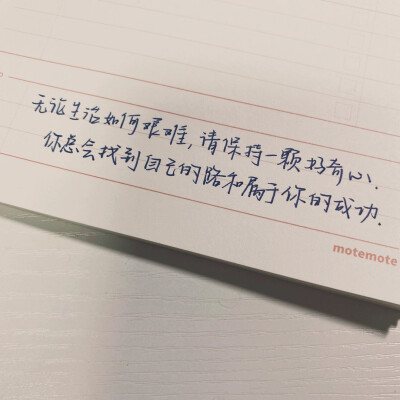 无论生活如何艰难,请保持一颗好奇心.
你总会找到自己的路和属于你的成功.
motemote